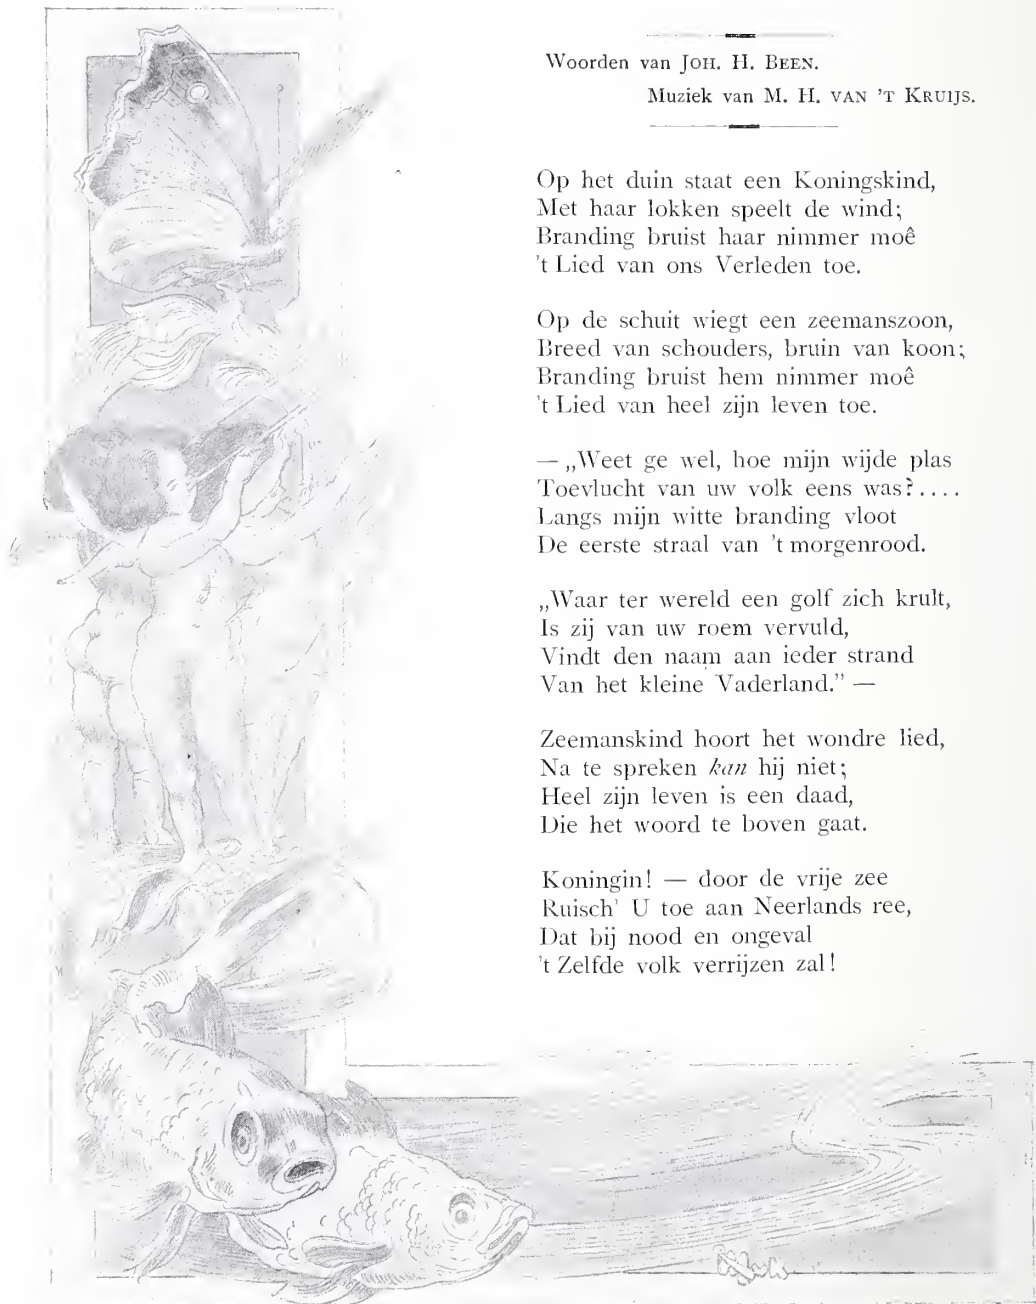 Woorden van JOH. H. BEEN.
Muziek van M. H. VAN 'T KRUIJS.
Op het duin staat een Koningskind,
Met haar lokken speelt de wind;
Branding bruist haar nimmer moê
't Lied van ons Verleden toe.
Op de schuit wiegt een zeemanszoon,
Breed van schouders, bruin van koon;
Branding bruist hem nimmer moê
't Lied van heel zijn leven toe.
— „Weet ge wel, hoe mijn wijde plas
Toevlucht van uw volk eens was?....
Langs mijn witte branding vloot
De eerste straal van 't morgenrood.
„Waar ter wereld een golf zich krult,
Is zij van uw roem vervuld,
Vindt den naam aan ieder strand
Van het kleine Vaderland.” —
Zeemanskind hoort het wondre lied,
Na te spreken kan hij niet;
Heel zijn leven is een daad,
Die het woord te boven gaat.
Koningin! — door de vrije zee
Ruisch' U toe aan Neerlands ree,
Dat bij nood en ongeval
't Zelfde volk verrijzen zal!